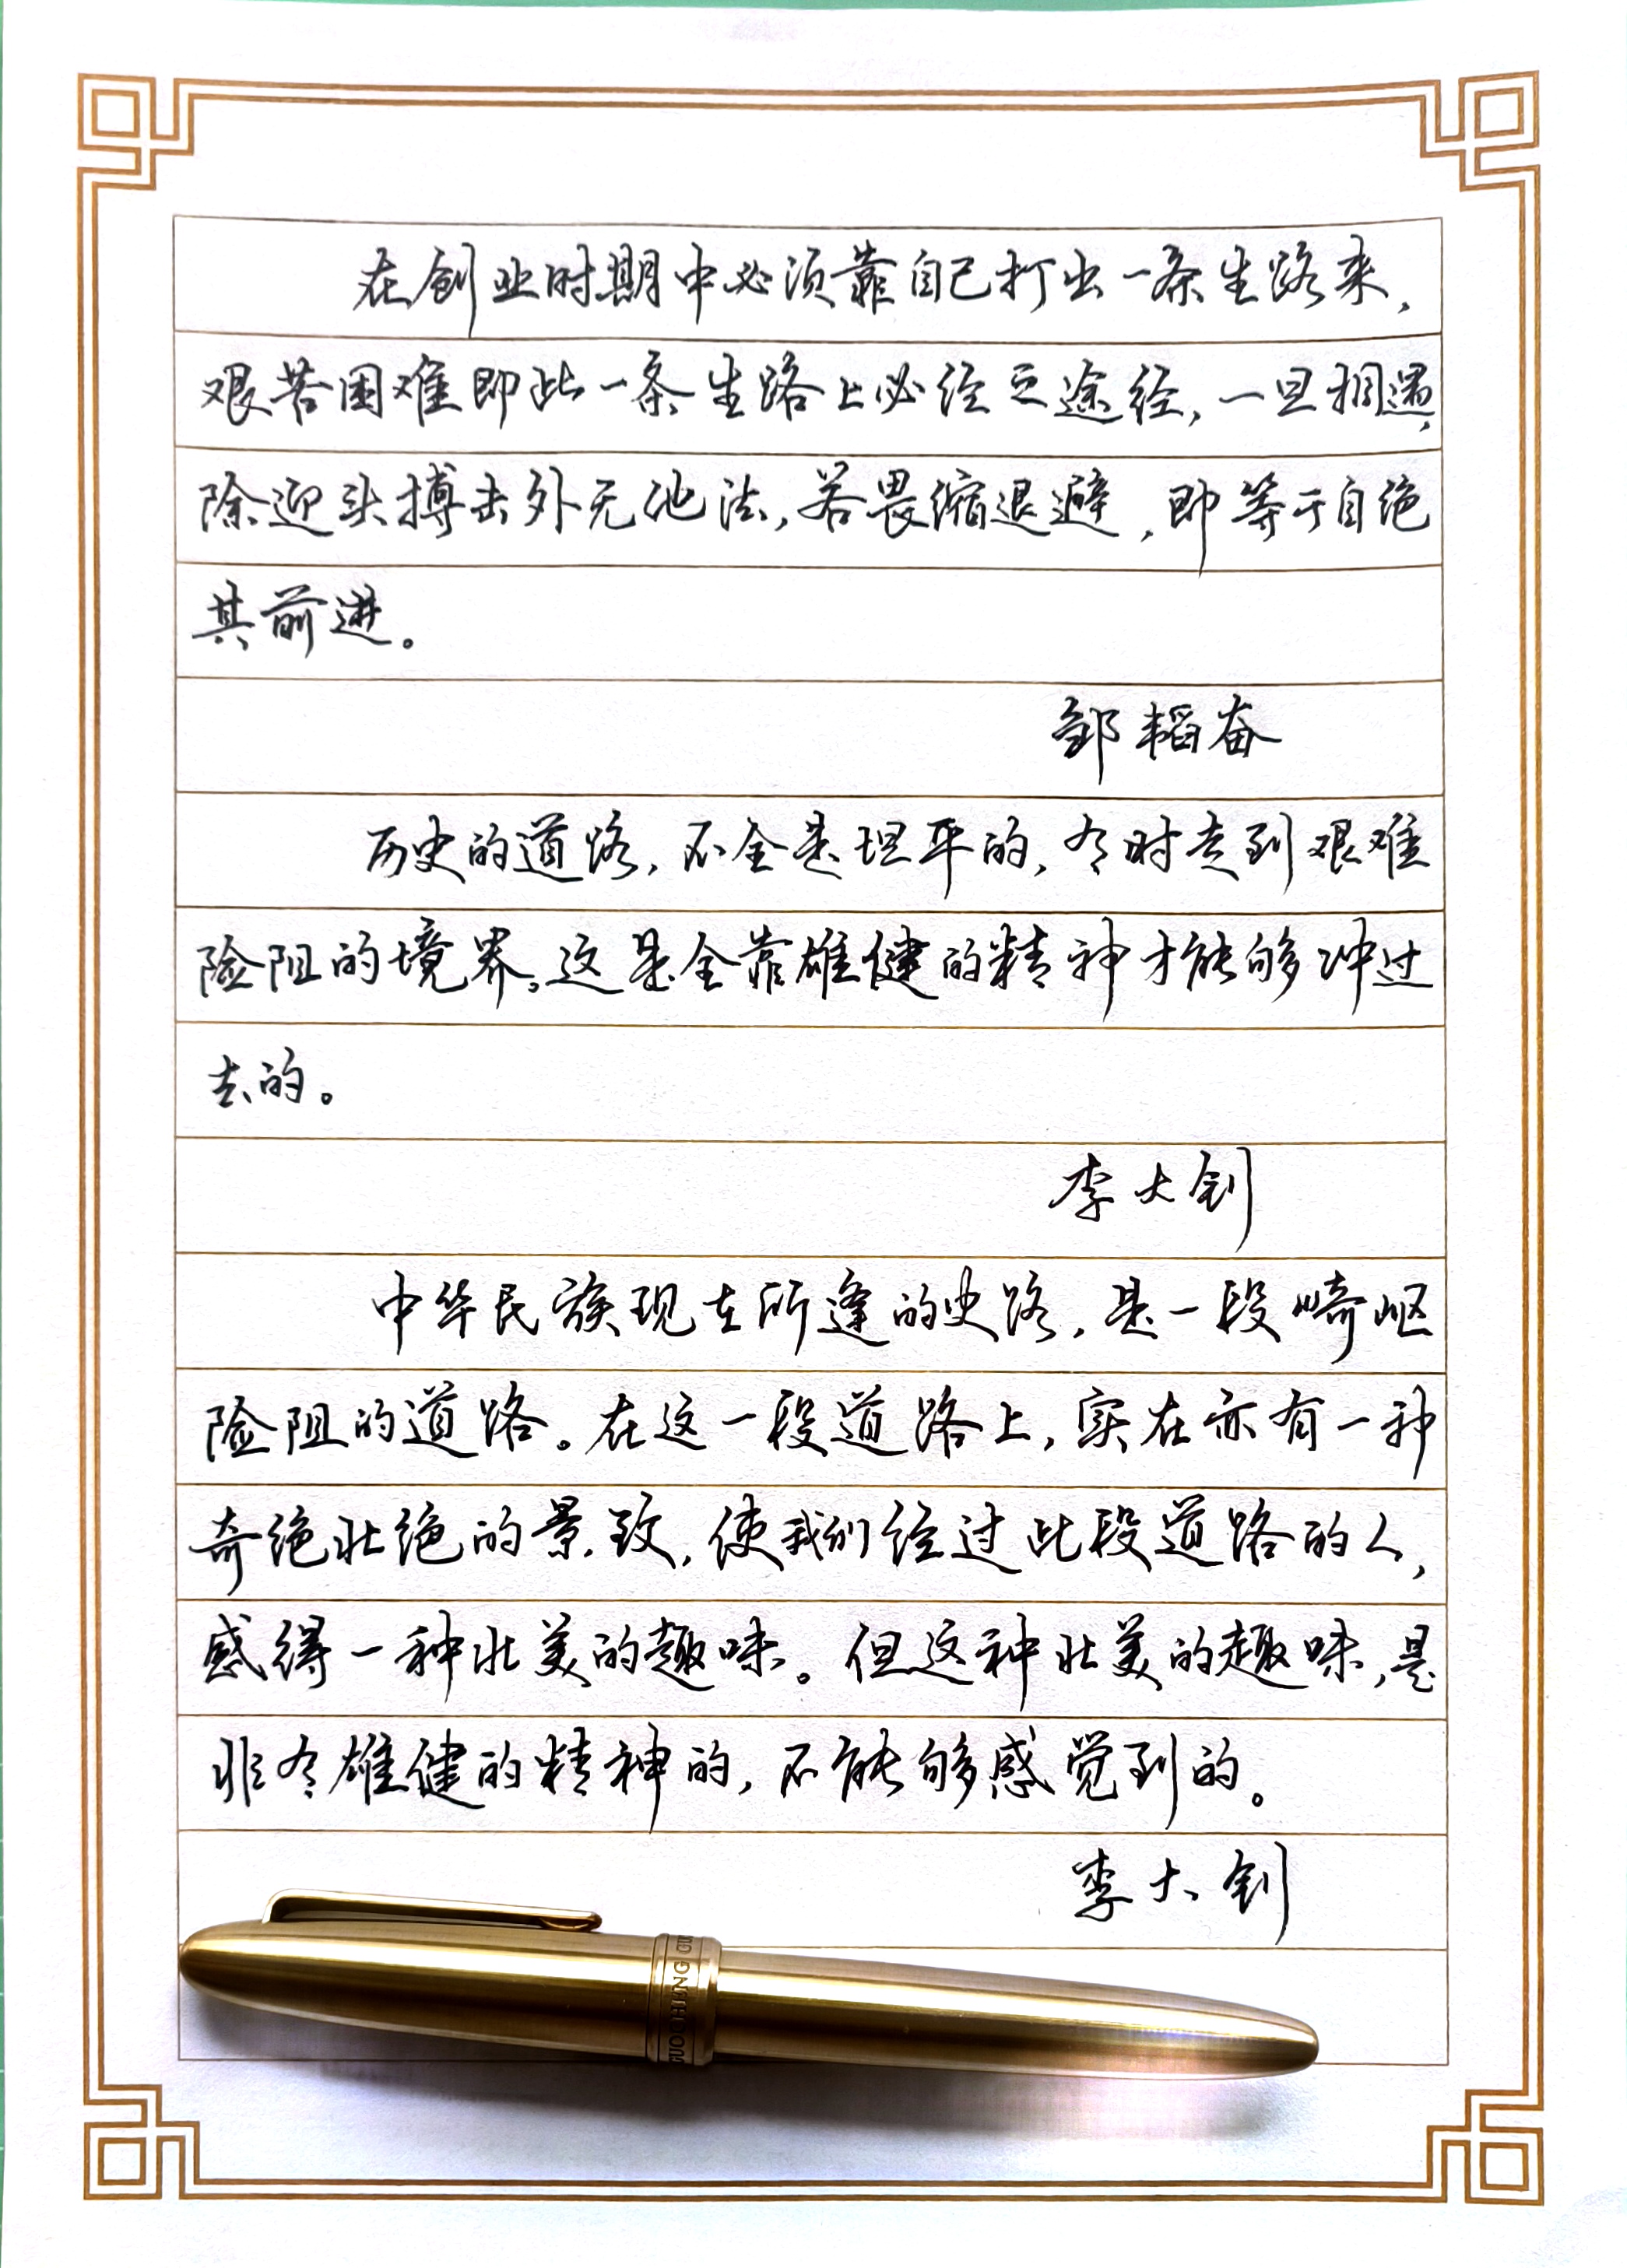 在创业时期中必须靠自己打出一条生路来，
艰苦困难即此一条生路上必经之途经，一旦相遇，
除迎头搏击外无他法，若畏缩退避，即等于自绝
其前进。
邹韬奋
历史的道路，不全是坦平的，有时走到艰难
险阻的境界。这是全靠雄健的精神才能够冲过
去的。
李大钊
中华民族现在所逢的史路，是一段崎岖
险阻的道路。在这一段道路上，实在亦有一种
奇绝壮绝的景致，使我们经过此段道路的人，
感得一种壮美的趣味。但这种壮美的趣味，是
非有雄健的精神的，不能够感觉到的。
李大钊